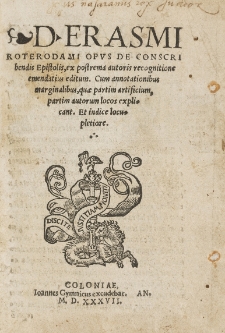 D. ERASMI
ROTERODAMI OPVS DE CONSCRI
bendis Epistolis, ex postrema autoris recognitione
emendatius editum. Cum annotationibus
marginalibus, quæ partim artificium,
partim autorum locos expli-
cant. Et indice locu-
pletiore.
DISCITE
IVSTITIAM
MONITI
COLONIAE,
Ioannes Gymnicus excudebat. AN.
M. D. XXXVII.